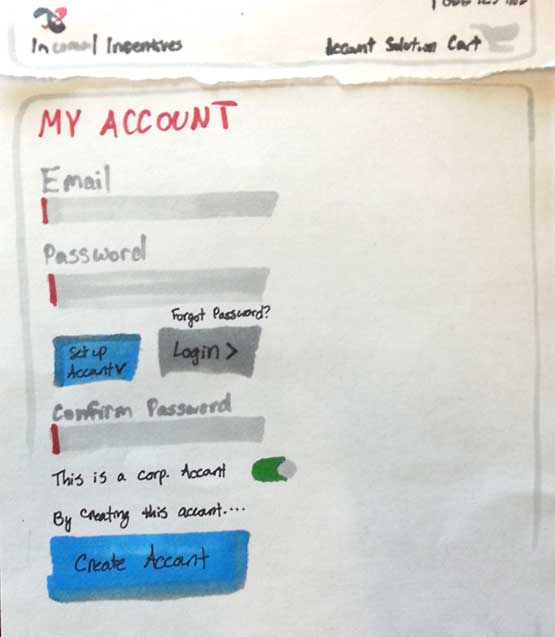 Incomm Incentives
Account Solution Cart
MY ACCOUNT
Email
Password
Forgot Password?
Set up
Account v
Login >
Confirm Password
This is a corp. Accant
By creating this accant....
Create Accant